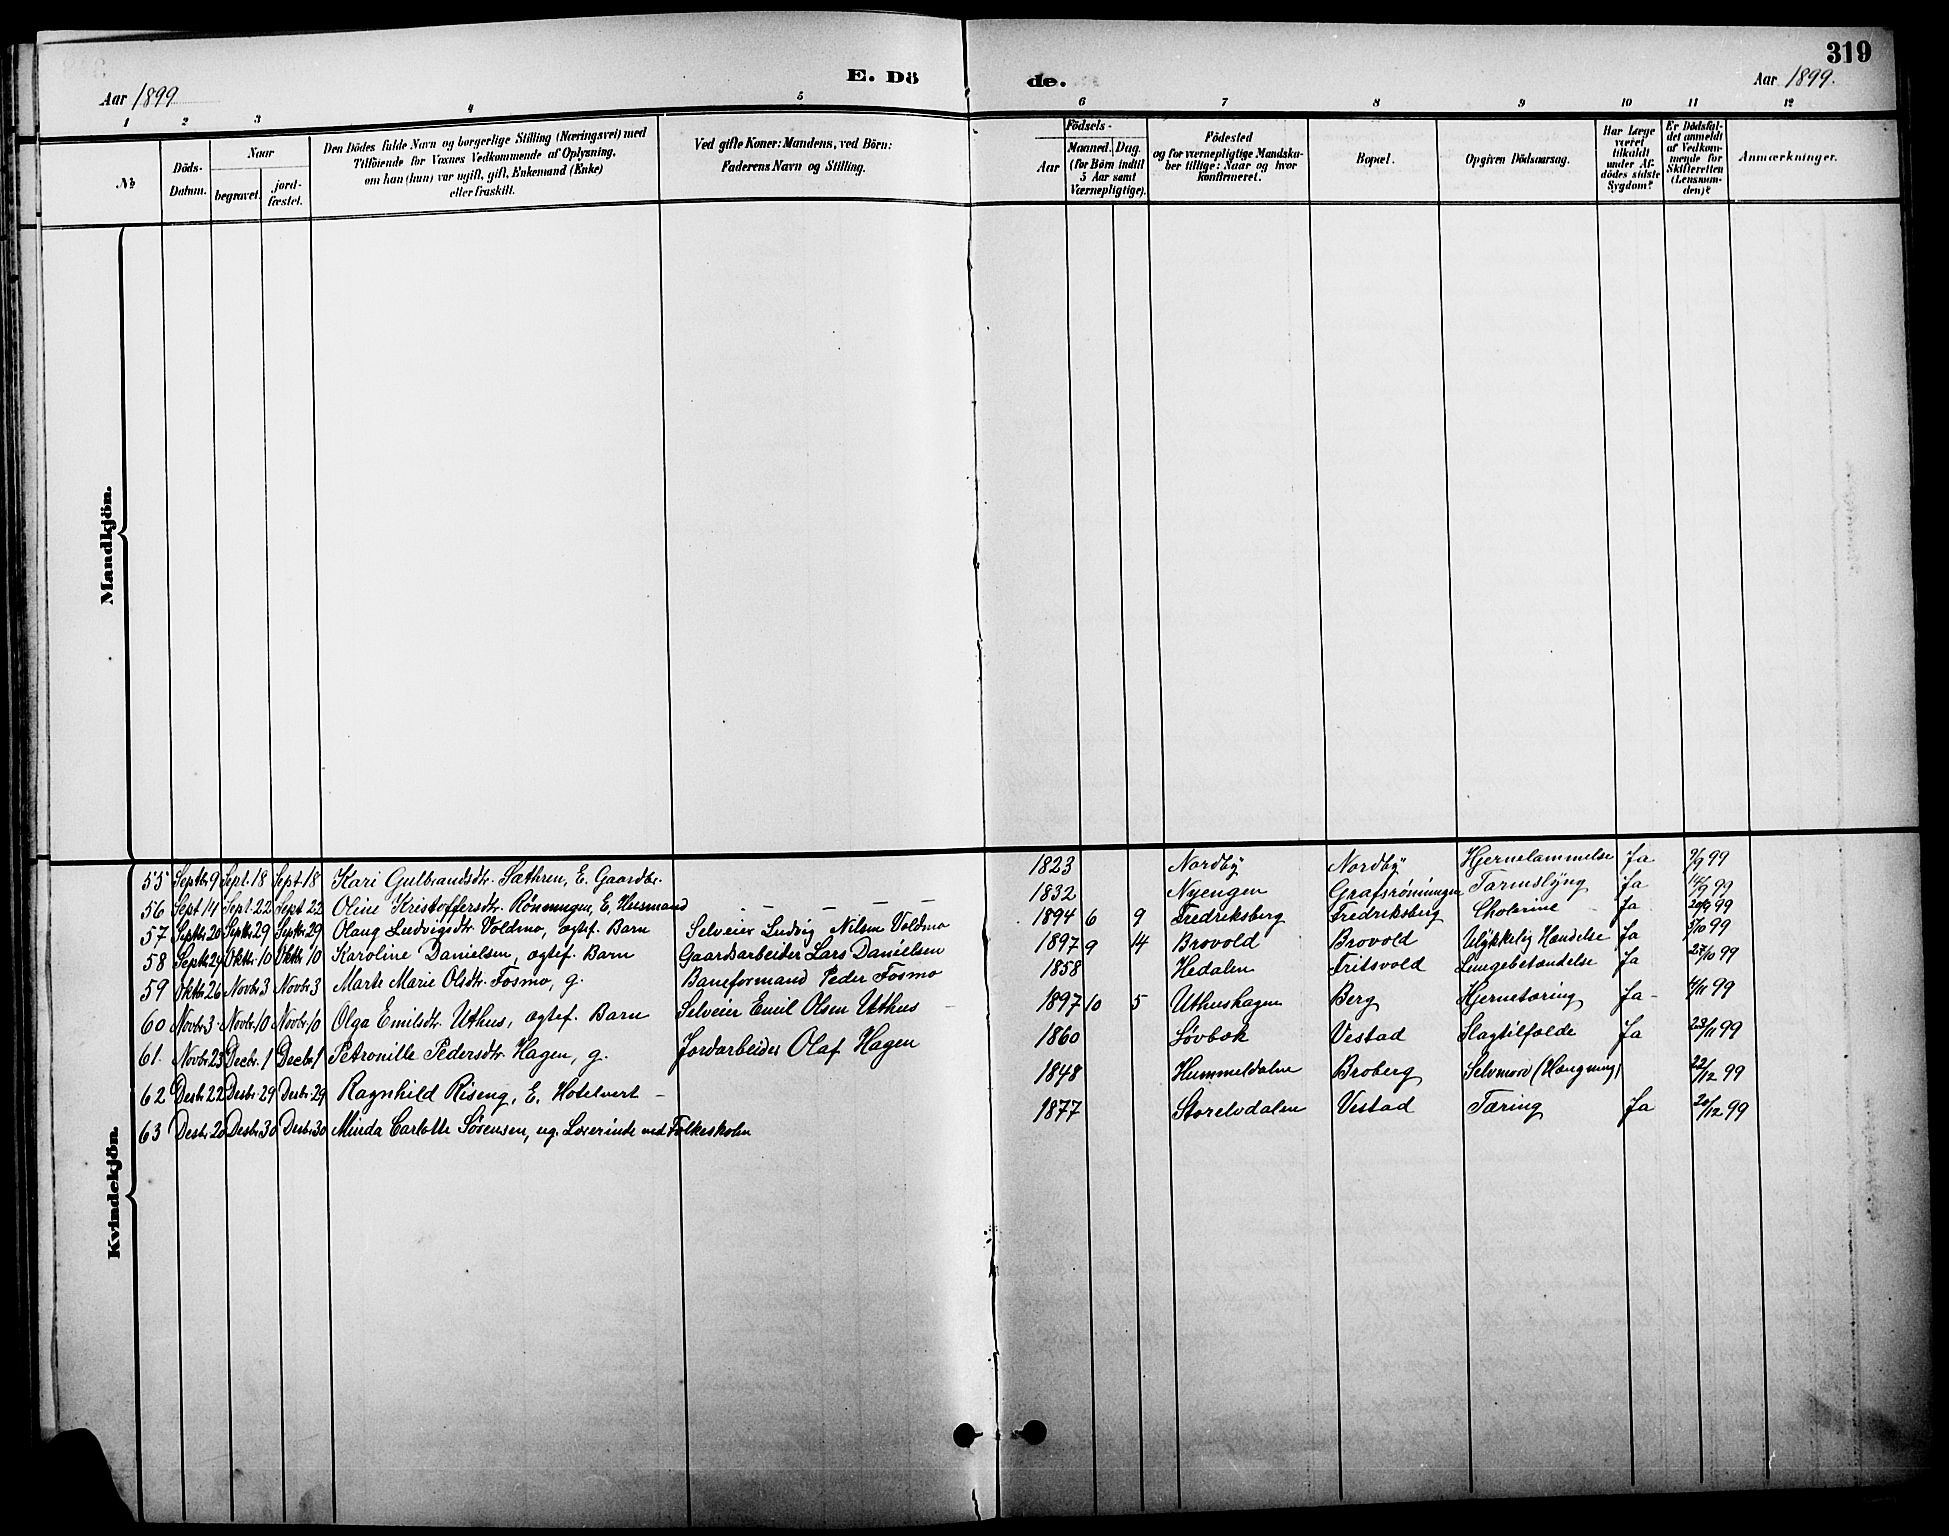 319
E. Dö de.
Aar 1899
Aar 1899.
1 2 3 4 5 6 7 8 9 10 11 12
№
Döds-Datum.
Naar
begravet.
jord-fæstet.
Den Dödes fulde Navn og borgerlige Stilling (Næringsvei) med
Tilföiende for Voxnes Vedkommende af Oplysning,
om han (hun) var ugift, gift, Enkemand (Enke)
eller fraskilt.
Ved gifte Koner: Mandens, ved Börn:
Faderens Navn og Stilling.
Födsels-
Aar
Maaned. Dag.
(for Börn indtil
5 Aar samt
Værnepligtige).
Födested
og for værnepligtige Mandska-
ber tillige: Naar og hvor
konfirmeret.
Bopæl.
Opgiven Dödsaarsag.
Har Læge
været
tilkaldt
under Af-
dödes sidste
Sygdom?
Er Dödsfal-
det anmeldt
af Vedkom-
mende for
Skifteretten
(Lensman-
den)?
Anmærkninger.
Mandkjön.
Kvindekjön.
55 Septr. 9 Sept. 18 Sept. 18 Kari Gulbrandsdtr. Sæthren, E. Gaardbr. 1823 Nordby Nordby Hjernelammelse Ja 9/9 99
56 Sept 14 Sept. 22 Sept 22 Oline Kristoffersdtr. Rönningen, E. Husmand — — — — — 1832 Nyengen Grafsrønningen Tarmslyng Ja 14/9 99
57 Septr. 20 Septr. 29 Septr. 29 Olaug Ludvigsdtr. Voldmo, ægtef. Barn Selveier Ludvig Nilsen Voldmo 1894 6 9 Fredriksberg Fredriksberg Cholerine Ja 20/9 99
58 Septr. 29 Oktbr. 10 Oktbr. 10 Karoline Danielsen, ægtef. Barn Gaardsarbeider Lars Danielsen 1897 9 14 Brovold Brovold Ulykkelig Hændelse Ja 5/10 99
59 Oktbr. 26 Novbr. 3 Novbr. 3 Marte Marie Olsdtr. Fosmo, g. Baneformand Peder Fosmo 1858 Hedalen Fritsvold Lungebetændelse Ja 27/10 99
60 Novbr. 3 Novbr. 10 Novbr. 10 Olga Emilsdtr. Uthus, ægtef. Barn Selveier Emil Olsen Uthus 1897 10 5 Uthushagen Berg Hjernetæring Ja 4/11 99
61. Novbr. 23 Decbr. 1 Decbr. 1 Petronille Pedersdtr. Hagen, g. Jordarbeider Olaf Hagen 1860 Løvbæk Vestad Slagtilfælde Ja 23/11 99
62 Desbr. 22 Desbr. 29 Desbr. 29 Ragnhild Riseng, E. Hotelvert — 1848 Hummeldalen Broberg Selvmord (Hængning) 22/12 99
63 Desbr. 20 Desbr. 30 Desbr. 30 Minda Carlotte Sörensen, ug. Lærerinde ved Folkeskolen 1877 Storelvdalen Vestad Tæring Ja 20/12 99